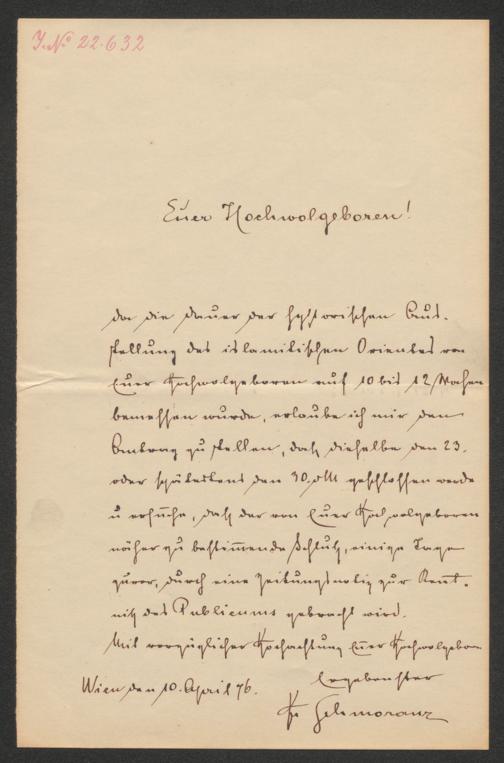 J. No 22.632
Euer Hochwolgeboren!
da die Dauer der hystorischen Aus-
stellung des islamitischen Orientes von
Euer Hochwolgeboren auf 10 bis 12 Wochen
bemessen wurde, erlaube ich mir den
Antrag zu stellen, daß dieselbe den 23.
oder spätestens den 30. d M geschlossen werde
u ersuche, daß der von Euer Hochwolgeboren
näher zu bestimende Schluß, einige Tage
zuvor, durch eine Zeitungsnotiz zur Kent-
niß des Publicums gebracht wird.
Mit vorzüglicher Hochachtung Euer Hochwolgeborn
Ergebenster
Wien den 10. April 76.
Fr Schmoranz